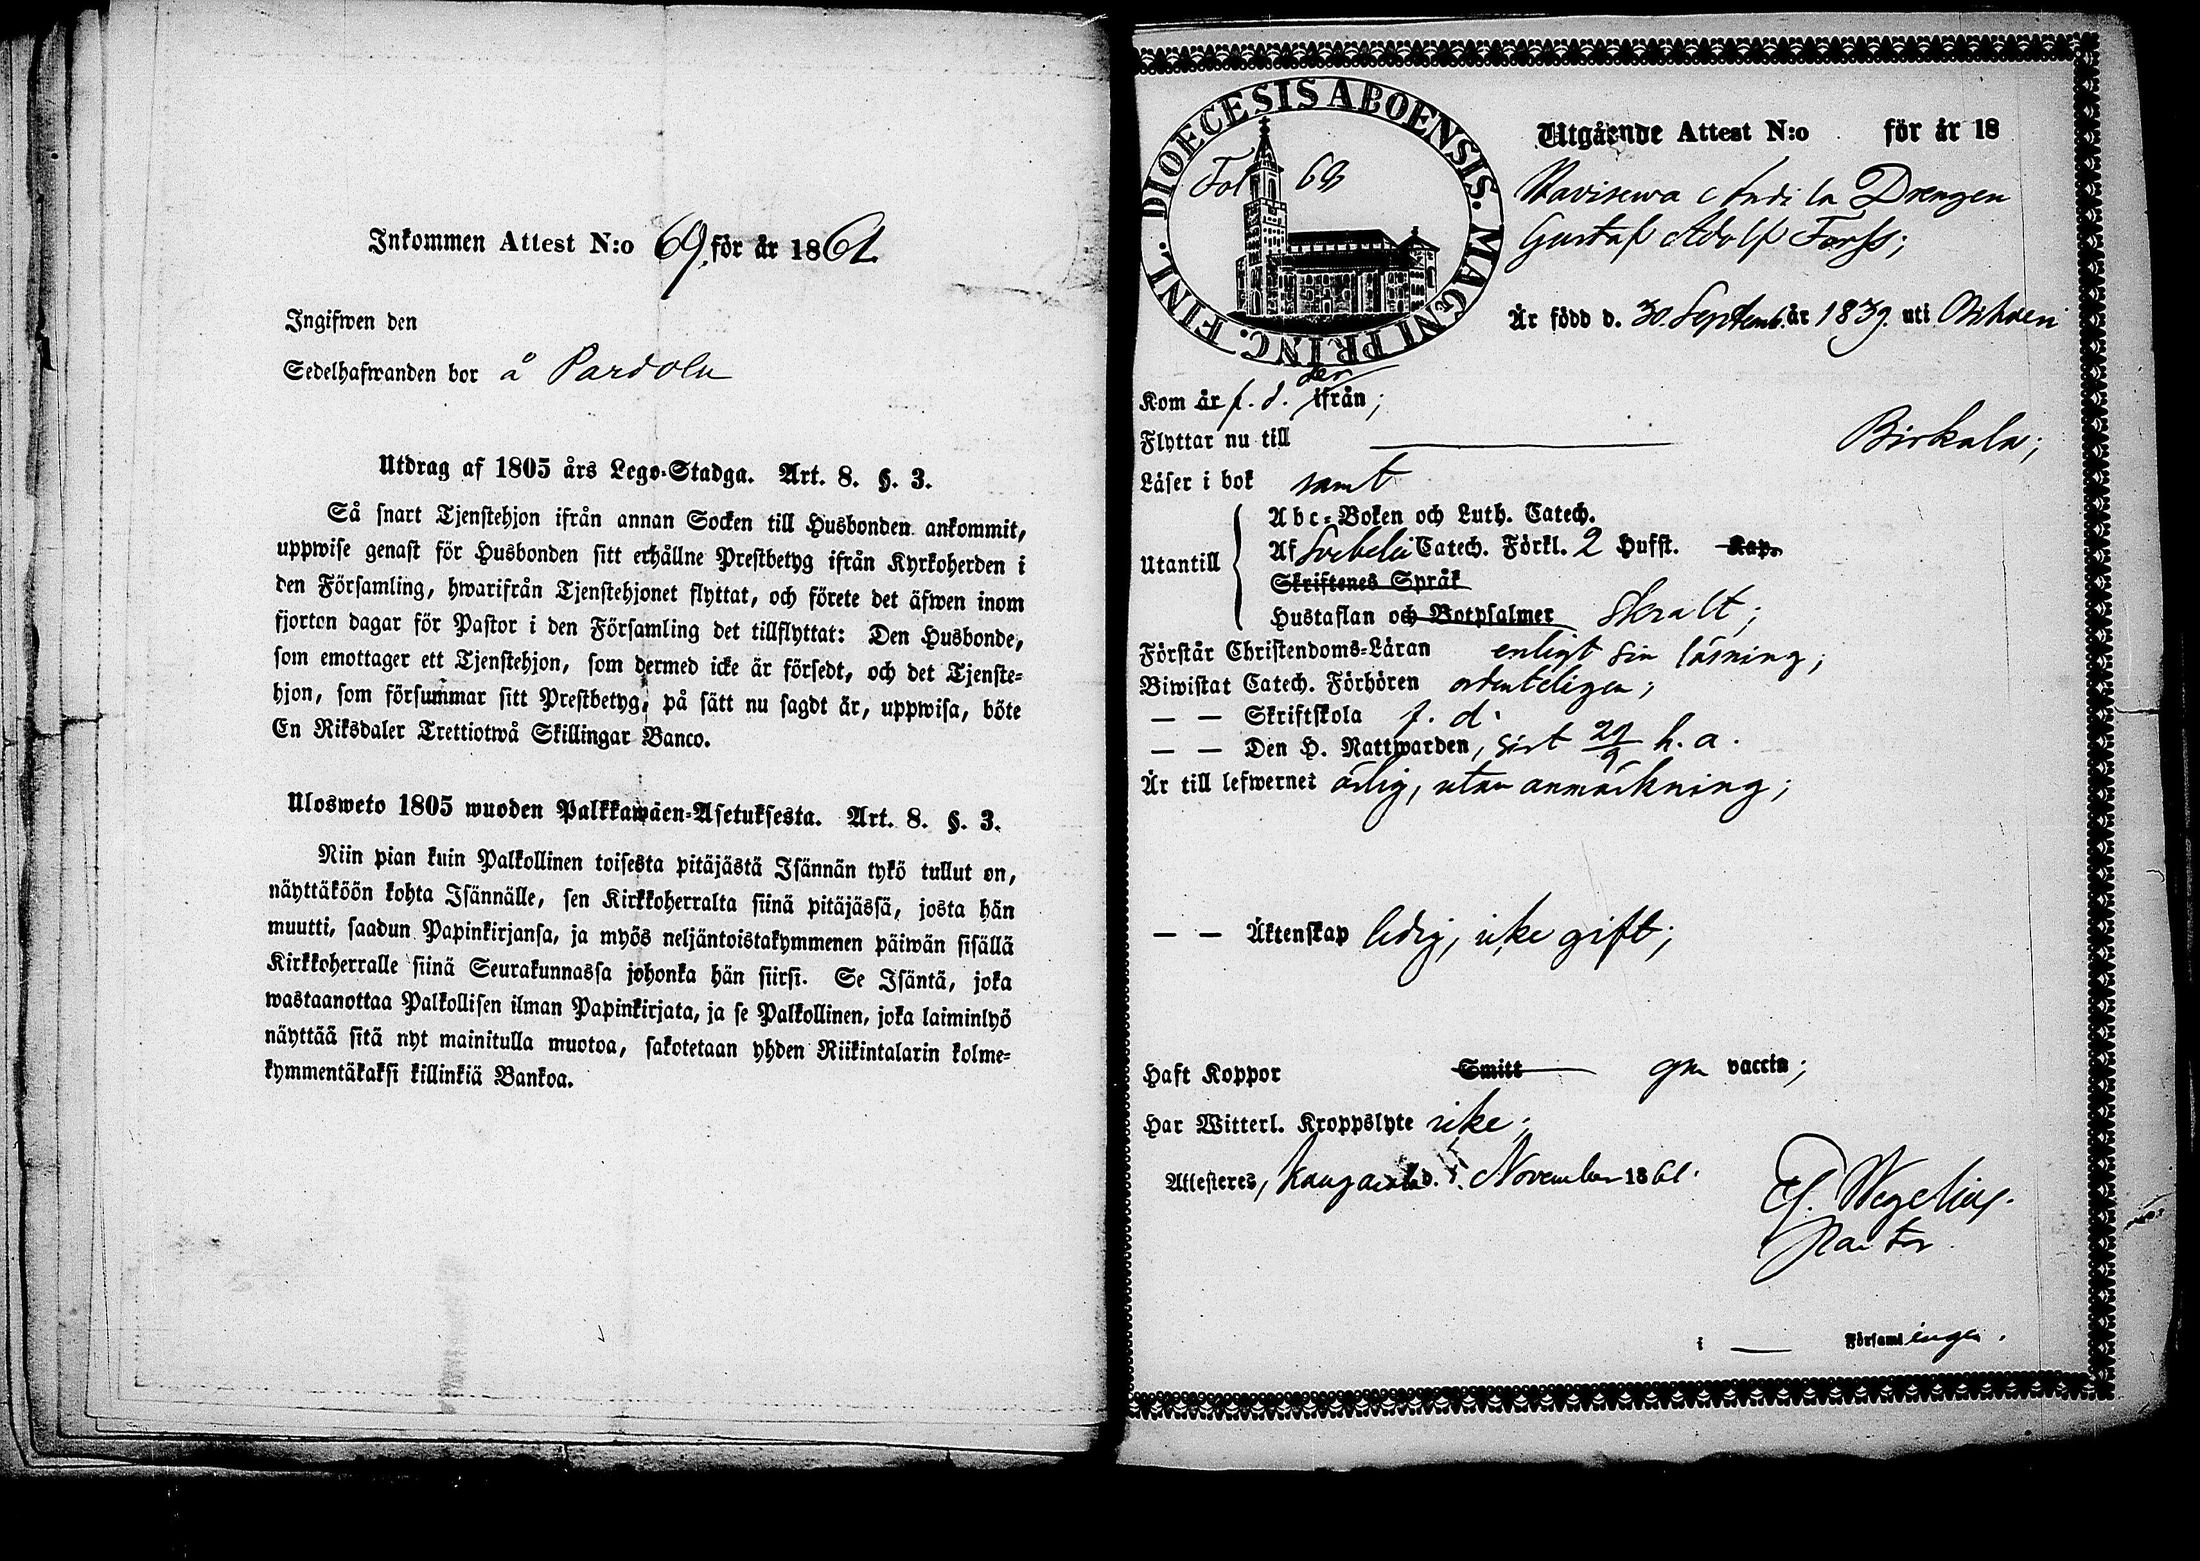 Inkommen Attest N:o 69. för år 1861.
Ingifwen den
Sedelhafwanden bor å Pardola
Utdrag af 1805 års Lego-Stadga. Art. 8. §. 3.
Så snart Tjenstehjon ifrån annan Socken till Husbonden ankommit,
uppwise genast för Husbonden sitt erhållne Prestbetyg ifrån Kyrkoherden i
den Församling, hwarifrån Tjenstehjonet flyttat, och förete det äfwen inom
fjorton dagar för Pastor i den Församling det tillflyttat: Den Husbonde,
som emottager ett Tjenstehjon, som dermed icke är försedt, och det Tjenste-
hjon, som försummar sitt Prestbetyg, på sätt nu sagdt är, uppwisa, böte
En Riksdaler Trettiotwå Skillingar Banco.
Ulosweto 1805 wuoden Palkkawäen-Asetuksesta. Art. 8. §. 3.
Niin pian kuin Palkollinen toisesta pitäjästä Isännän tykö tullut on,
näyttäköön kohta Isännälle, sen Kirkkoherralta siinä pitäjässä, josta hän
muutti, saadun Papinkirjansa, ja myös neljäntoistakymmenen päiwän sisällä
Kirkkoherralle siinä Seurakunnassa johonka hän siirsi. Se Isäntä, joka
wastaanottaa Palkollisen ilman Papinkirjata, ja se Palkollinen, joka laiminlyö
näyttää sitä nyt mainitulla muotoa, sakotetaan yhden Riikintalarin kolme-
kymmentäkaksi killinkiä Bankoa.
DIOECESIS ABOENSIS. MAGNI PRINC. FINL.
Fol 68
Utgående Attest N:o för år 18
Drengen
Gustaf Adolf Forss;
Är född d. 30. Septemb. år 1839. uti
Kom år f. d. der ifrån;
Flyttar nu till Birkala;
Läser i bok samt
Utantill
Abc-Boken och Luth. Catech.
Af Svebelii Catech. Förkl. 2 Hufst. Kap.
Skriftenes Språk
Hustaflan och Botpsalmer skralt;
Förstår Christendoms-Läran enligt sin läsning;
Biwistat Catech. Förhören ordenteligen;
— — Skriftskola f. d.
— — Den H. Nattwarden, sist 29/9 h. a.
Är till lefwernet ärlig, utan anmärkning;
— — Äktenskap ledig, icke gift;
Haft Koppor Smitt gm vaccin;
Har Witterl. Kroppslyte icke;
Attesteres, Kangasala d. November 1861.
Ef. Wegelius.
Pastor
i — Församlingen.